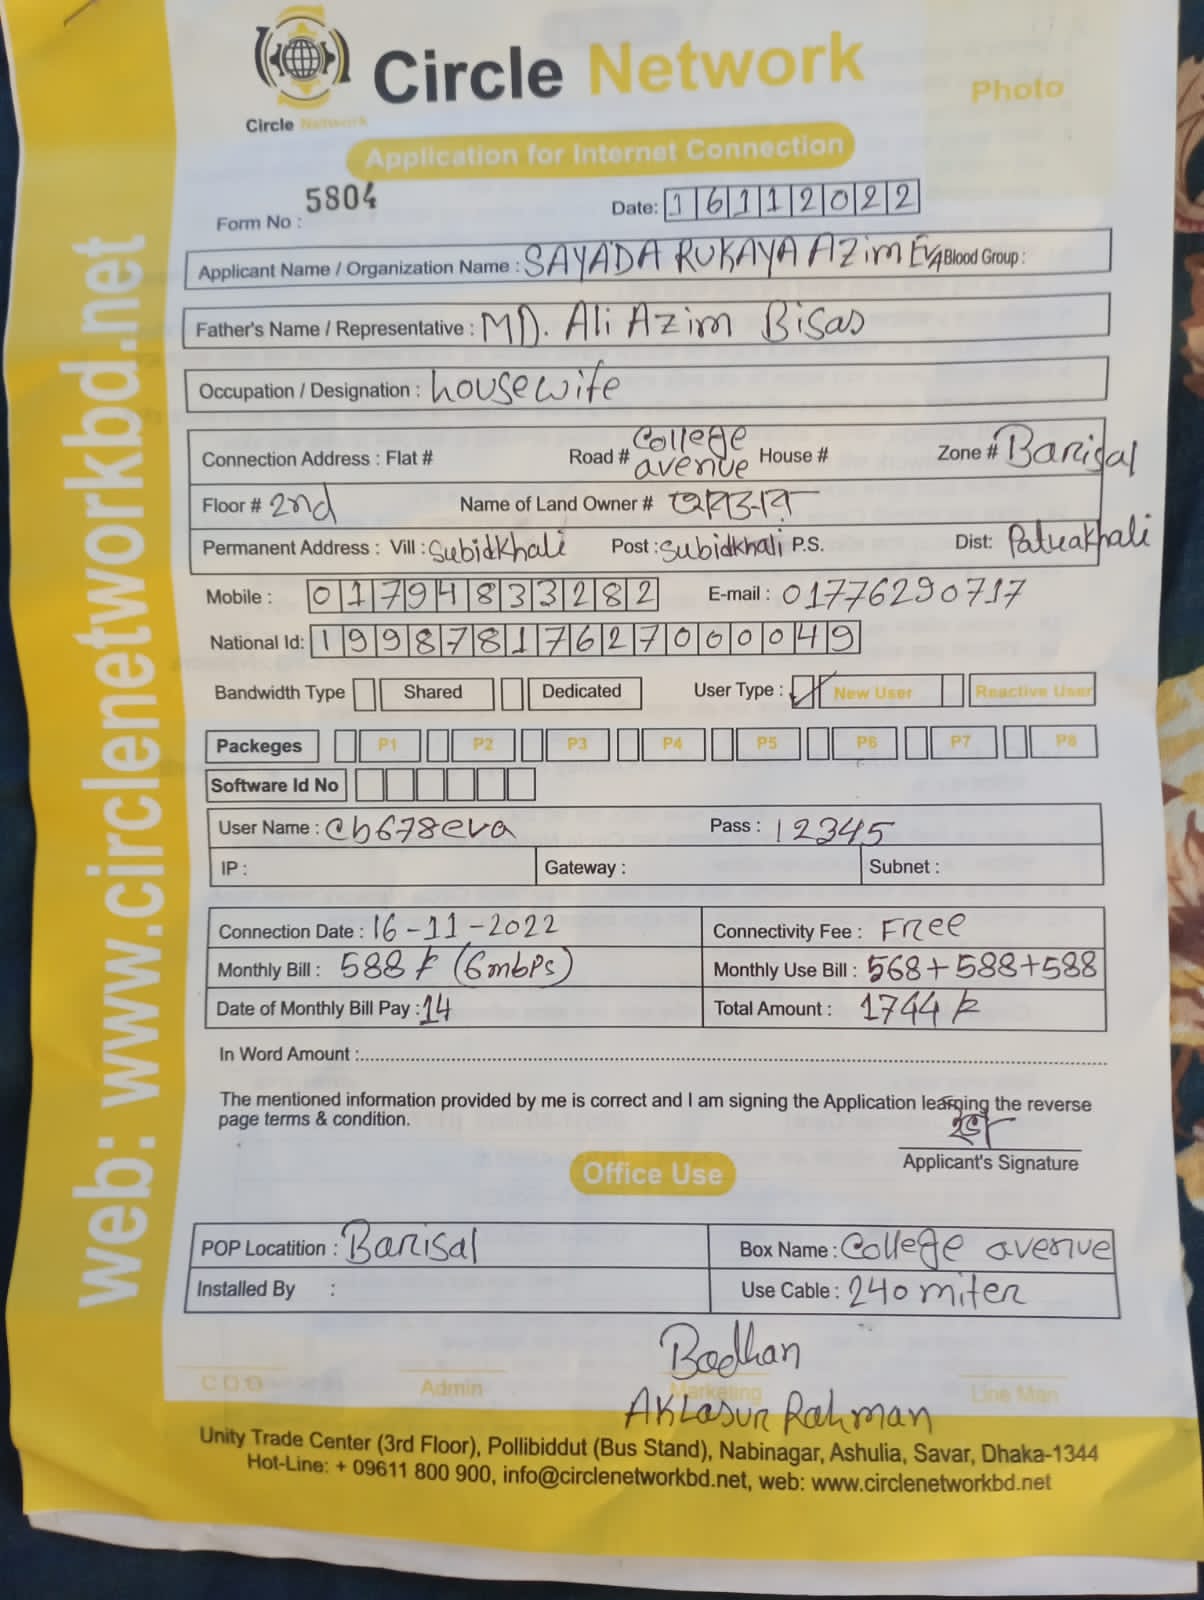 Circle Network
Photo
Circle Network
Application for Internet Connection
Form No : 5804
Date: 16112022
Applicant Name / Organization Name : SAYADA RUKAYA AZim EVA Blood Group :
Father's Name / Representative : MD. Ali Azim Bisas
Occupation / Designation : housewife
Connection Address : Flat # Road # College avenue House # Zone # Barisal
Floor # 2nd Name of Land Owner #
Permanent Address : Vill : Subidkhali Post : Subidkhali P.S. Dist: Patuakhali
Mobile : 01794833282 E-mail : 01776290717
National Id: 19987817627000049
Bandwidth Type Shared Dedicated User Type : New User Reactive User
Packeges P1 P2 P3 P4 P5 P6 P7 P8
Software Id No
User Name : cb678eva Pass : 12345
IP : Gateway : Subnet :
Connection Date : 16-11-2022 Connectivity Fee : Free
Monthly Bill : 588 (6mbps) Monthly Use Bill : 568+588+588
Date of Monthly Bill Pay : 14 Total Amount : 1744
In Word Amount :
The mentioned information provided by me is correct and I am signing the Application learning the reverse
page terms & condition.
Applicant's Signature
Office Use
POP Locatition : Barisal Box Name : College avenue
Installed By : Use Cable : 240 miter
Badhan
C O O Admin Marketing Line Man
Aklasur Rahman
Unity Trade Center (3rd Floor), Pollibiddut (Bus Stand), Nabinagar, Ashulia, Savar, Dhaka-1344
Hot-Line: + 09611 800 900, info@circlenetworkbd.net, web: www.circlenetworkbd.net
web: www.circlenetworkbd.net